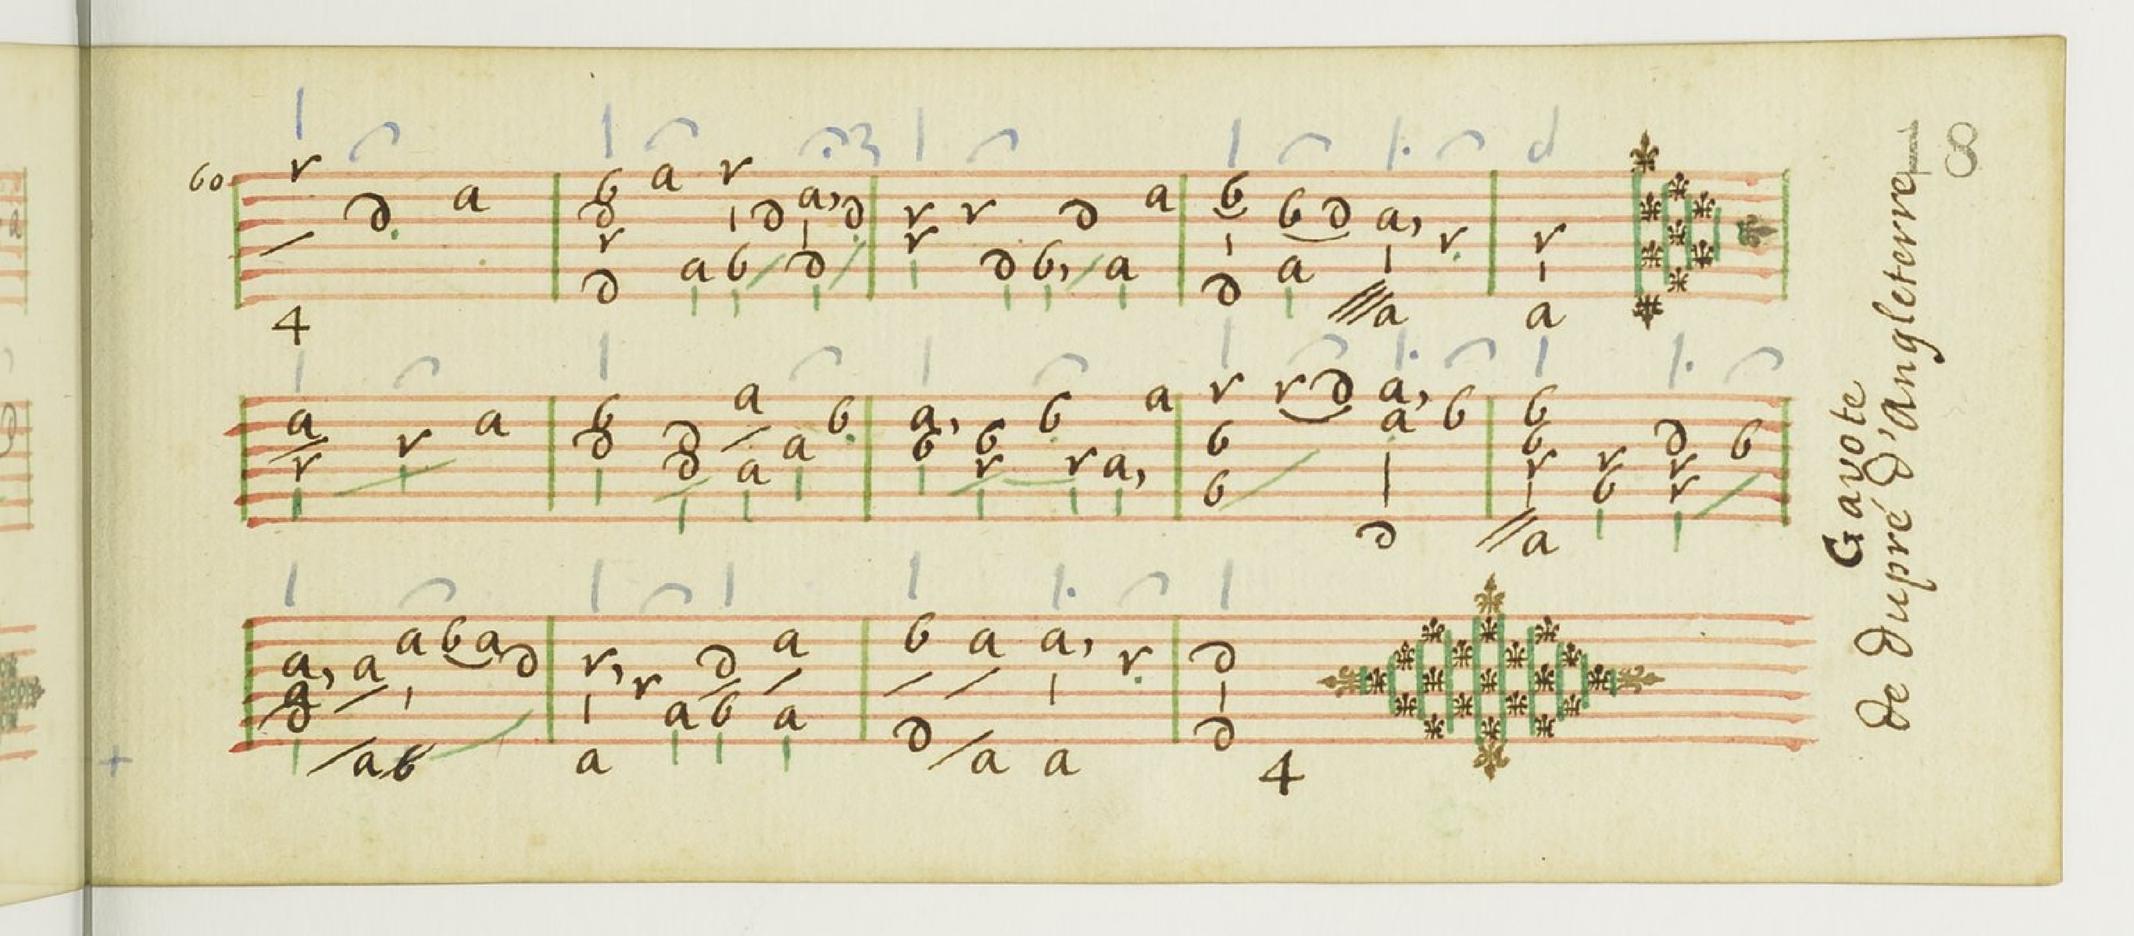 60
18
r ∂ a
4
b a r
∂ ∂ a, ∂
r
∂ a b ∂
r r ∂ a
r
∂ b, a
b b ∂ a, r
∂ a a
r
a
a r a
r
b ∂ a b
∂ ∂ a a
a, b b a
b r r a,
r r ∂ a, b
b a
b ∂
b r ∂ b
b b r
r r
a
a, a a b a ∂
a
∂
a b
r, r ∂ a
a a b a
b a a, r
∂ a a
∂
∂
4
Gavote
de dupré d'angleterre